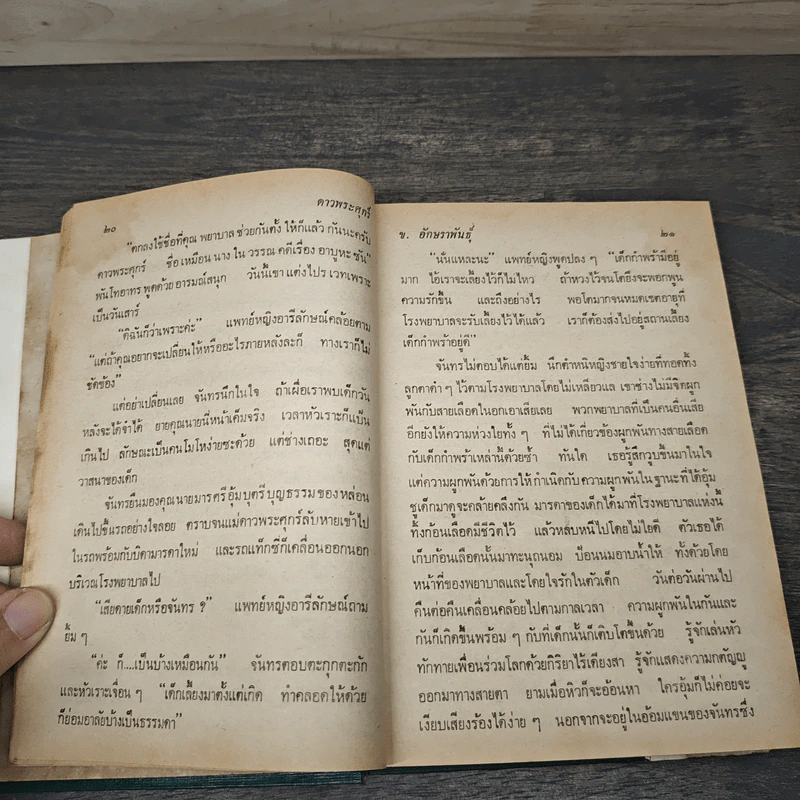 ดาวพระศุกร์
๒๐
"ตกลงใช้ชื่อที่คุณ พยาบาล ช่วยกันตั้ง ให้ก็แล้ว กันนะครับ
ดาวพระศุกร์ ชื่อ เหมือน นาง ใน วรรณ คดีเรื่อง อาบูหะ ซัน"
พันโทอาทร พูดด้วย อารมณ์สนุก วันนี้เขา แต่งไปร เวทเพราะ
เป็นวันเสาร์
"ดิฉันก็ว่าเพราะค่ะ" แพทย์หญิงอารีลักษณ์คล้อยตาม
"แต่ถ้าคุณอยากจะเปลี่ยนให้หรืออะไรภายหลังละก็ ทางเราก็ไม่
ขัดข้อง"
แต่อย่าเปลี่ยนเลย จันทรนึกในใจ ถ้าเผื่อเราพบเด็กวัน
หลังจะได้จำได้ ยายคุณนายนี่หน้าเค็มจริง เวลาหัวเราะก็แป็น
เกินไป ลักษณะเป็นคนโมโหง่ายซะด้วย แต่ช่างเถอะ สุดแต่
วาสนาของเด็ก
จันทรยืนมองคุณนายมารศรีอุ้มบุตรีบุญธรรมของหล่อน
เดินไปขึ้นรถอย่างใจลอย ตราบจนแม่ดาวพระศุกร์ลับหายเข้าไป
ในรถพร้อมกับบิดามารดาใหม่ และรถแท็กซี่ก็เคลื่อนออกนอก
บริเวณโรงพยาบาลไป
"เสียดายเด็กหรือจันทร ?" แพทย์หญิงอารีลักษณ์ถาม
ยิ้ม ๆ
"ค่ะ ก็....เป็นบ้างเหมือนกัน" จันทรตอบตะกุกตะกัก
และหัวเราะเจื่อน ๆ "เด็กเลี้ยงมาตั้งแต่เกิด ทำคลอดให้ด้วย
ก็ย่อมอาลัยบ้างเป็นธรรมดา"
ข. อักษราพันธุ์
๒๑
"นั่นแหละนะ" แพทย์หญิงพูดปลง ๆ "เด็กกำพร้ามีอยู่
มาก ไอ้เราจะเลี้ยงไว้ก็ไม่ไหว ถ้าหวงไว้จนโตยิ่งจะพอกพูน
ความรักขึ้น และถึงอย่างไร พอโตมากจนหมดเขตอายุที่
โรงพยาบาลจะรับเลี้ยงไว้ได้แล้ว เราก็ต้องส่งไปอยู่สถานเลี้ยง
เด็กกำพร้าอยู่ดี"
จันทรไม่ตอบได้แต่ยิ้ม นึกตำหนิหญิงชายใจง่ายที่ทอดทิ้ง
ลูกตาดำ ๆ ไว้ตามโรงพยาบาลโดยไม่เหลียวแล เขาช่างไม่มีจิตผูก
พันกับสายเลือดในอกเอาเสียเลย พวกพยาบาลที่เป็นคนอื่นเสีย
อีกยังให้ความห่วงใยทั้ง ๆ ที่ไม่ได้เกี่ยวข้องผูกพันทางสายเลือด
กับเด็กกำพร้าเหล่านี้ด้วยซ้ำ ทันใด เธอรู้สึกวูบขึ้นมาในใจ
แต่ความผูกพันด้วยการให้ กำเนิดกับ ความผูกพันใน ฐานะที่ได้อุ้ม
ชูเด็กมาดูจะคล้ายคลึงกัน มารดาของเด็กได้มาที่โรงพยาบาลแห่งนี้
ทิ้งก้อนเลือดมีชีวิตไว้ แล้วหลบหนีไปโดยไม่ไยดี ตัวเธอได้
เก็บก้อนเลือดนั้นมาทะนุถนอม ป้อนนมอาบน้ำให้ ทั้งด้วยโดย
หน้าที่ของพยาบาลและโดยใจรักในตัวเด็ก วันต่อวันผ่านไป
คืนต่อคืนเคลื่อนคล้อยไปตามกาลเวลา ความผูกพันในกันและ
กันก็เกิดขึ้นพร้อม ๆ กับที่เด็กนั้นก็เติบโตขึ้นด้วย รู้จักเล่นหัว
ทักทายเพื่อนร่วมโลกด้วยกิริยาไร้เดียงสา รู้จักแสดงความกตัญญู
ออกมาทางสายตา ยามเมื่อหิวก็จะอ้อนหา ใครอุ้มก็ไม่ค่อยจะ
เงียบเสียงร้องได้ง่าย ๆ นอกจากจะอยู่ในอ้อมแขนของจันทรซึ่ง